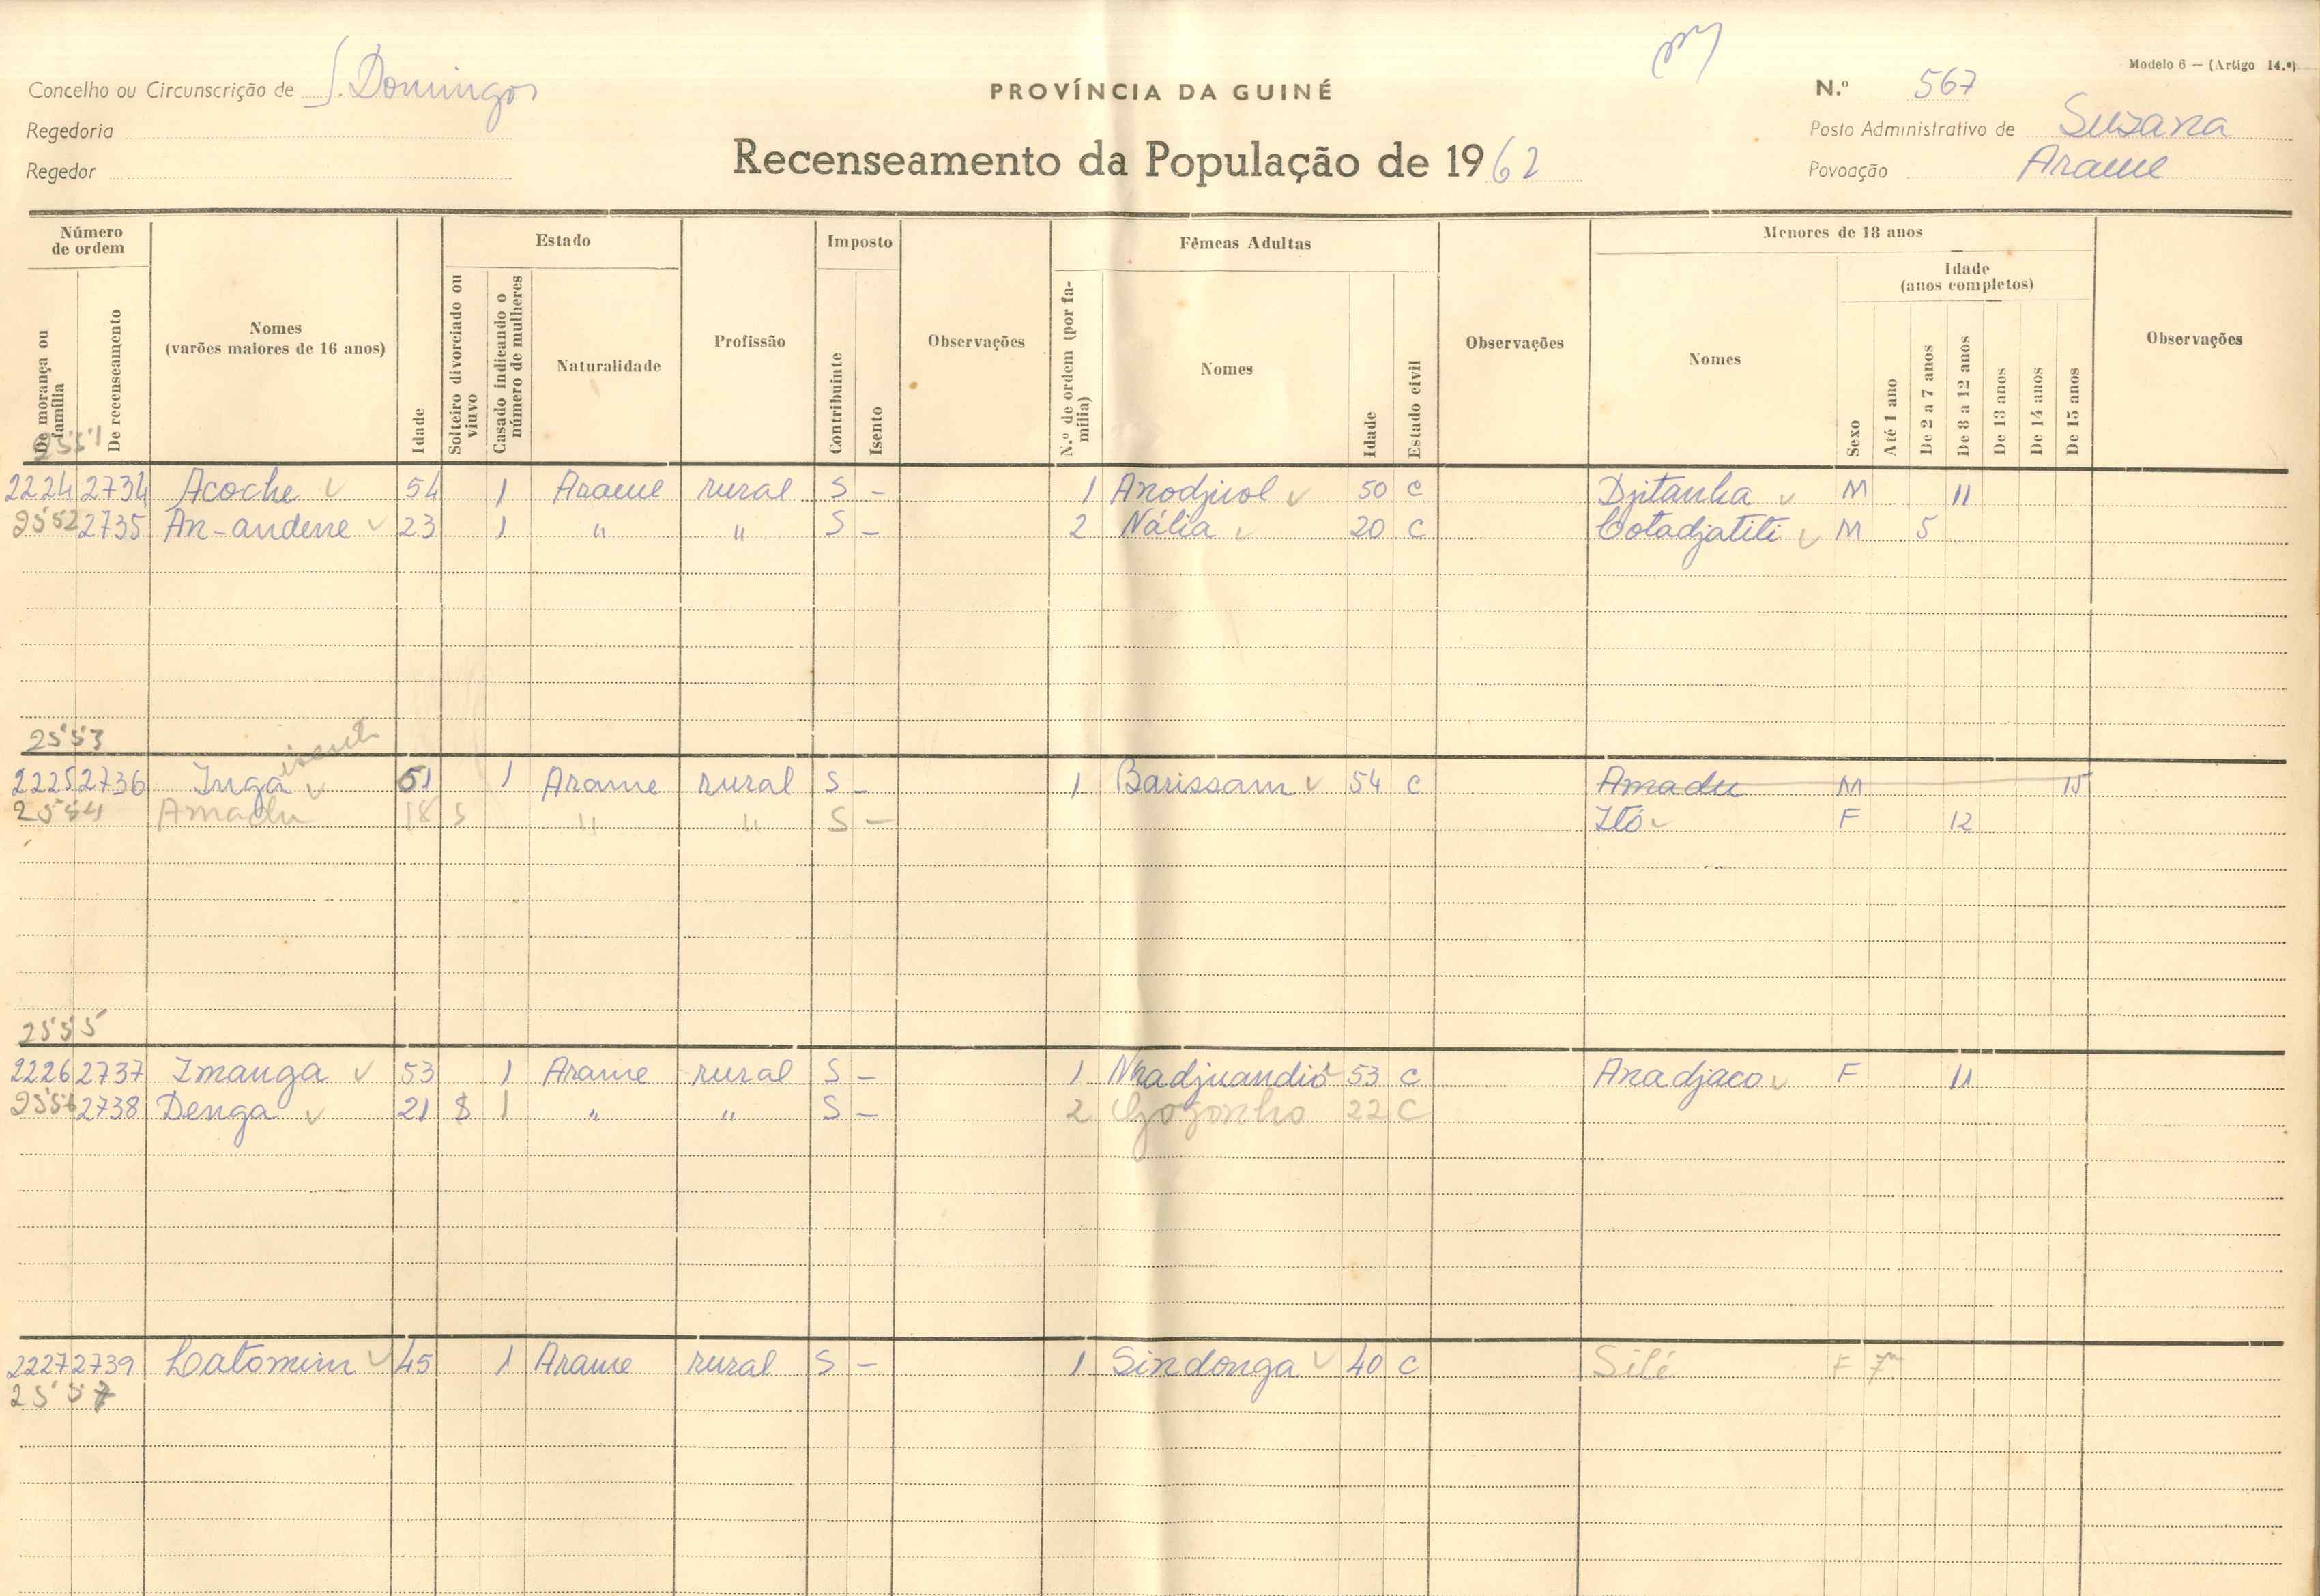 Modelo 6 — (Artigo 14.º)
Concelho ou Circunscrição de S. Domingos
PROVÍNCIA DA GUINÉ
N.º 567
Regedoria
Posto Administrativo de Suzana
Regedor
Recenseamento da População de 1962
Povoação Arame
Número de ordem
Estado
Imposto
Fêmeas Adultas
Menores de 18 anos
De morança ou família
De recenseamento
Nomes (varões maiores de 16 anos)
Idade
Solteiro divorciado ou viuvo
Casado indicando o número de mulheres
Naturalidade
Profissão
Contribuinte
Isento
Observações
N.º de ordem (por família)
Nomes
Idade
Estado civil
Observações
Nomes
Sexo
Idade (anos completos)
Até 1 ano
De 2 a 7 anos
De 8 a 12 anos
De 13 anos
De 14 anos
De 15 anos
Observações
2551
2224 2734 Acoche 54 1 Arame rural S - 1 Anodjuol 50 C Djitanha M 11
2552 2735 An-andene 23 1 " " S - 2 Nália 20 C Cotadjatiti M 5
2553
isento
2225 2736 Inga 51 1 Arame rural S - 1 Barissam 54 C Amadu M 15
2554 Amadu 18 S " " S - Itó F 12
2555
2226 2737 Imanga 53 1 Arame rural S - 1 Nhadjuandió 53 C Anadjaco F 11
2556 2738 Denga 21 S 1 " " S - 2 22 C
2227 2739 Catomim 45 1 Arame rural S - 1 Sindonga 40 C Silé F 7m
2557